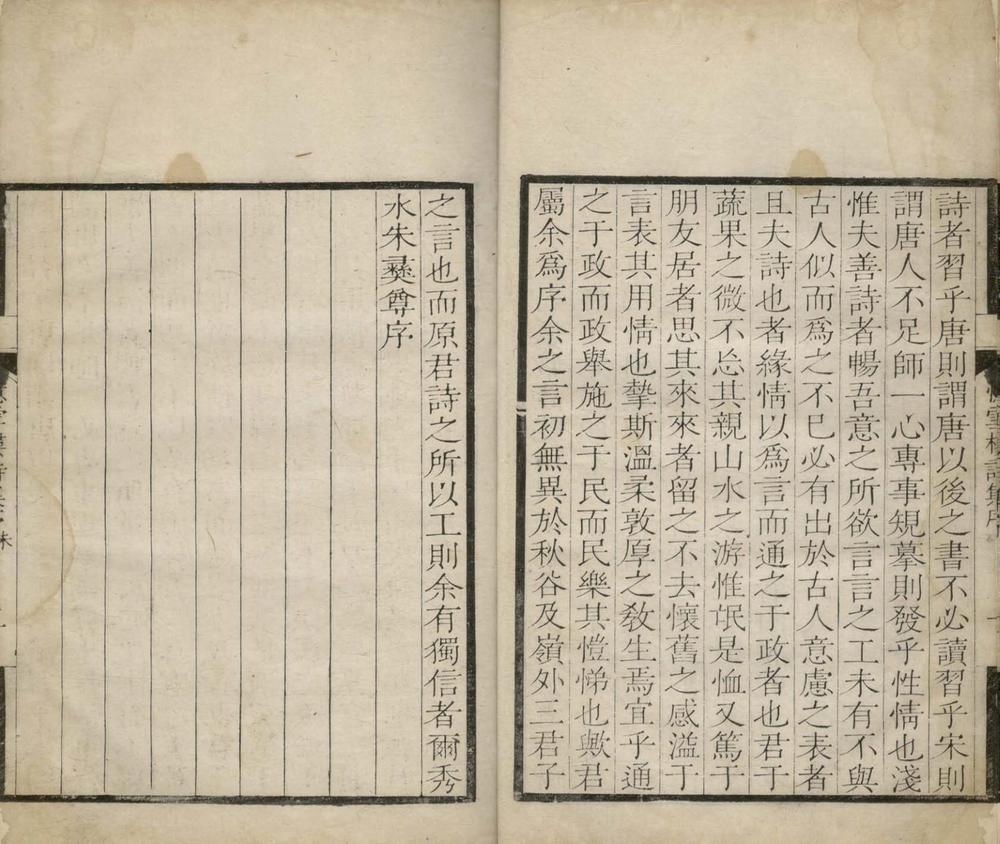 詩者習乎唐則謂唐以後之書不必讀習乎宋則
謂唐人不足師一心專事規摹則發乎性情也淺
惟夫善詩者暢吾意之所欲言言之工未有不與
古人似而為之不已必有出於古人意慮之表者
且夫詩也者緣情以為言而通之于政者也君于
蔬果之微不忘其親山水之游惟氓是恤又篤于
朋友居者思其來來者留之不去懷舊之感溢于
言表其用情也摯斯溫柔敦厚之教生焉宜乎通
之于政而政舉施之于民而民樂其愷悌也歟君
屬余為序余之言初無異於秋谷及嶺外三君子
之言也而原君詩之所以工則余有獨信者爾秀
水朱彝尊序